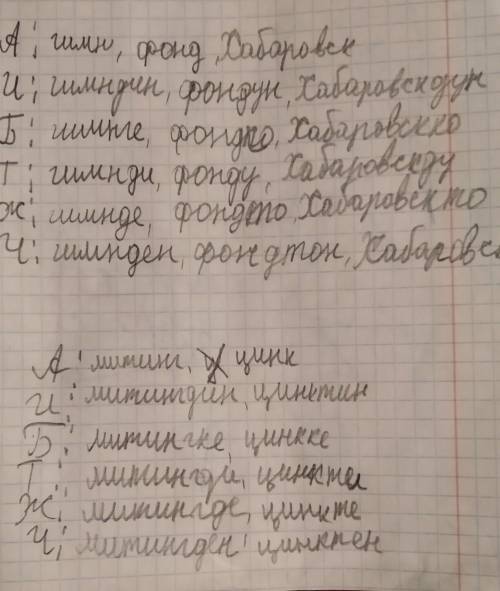 А: гимн, фонд, Хабаровск
И: гимндин, фондун, Хабаровскдун
Б: гимнге, фондго, Хабаровскко
Т: гимнди, фонду, Хабаровскду
Ж: гимнде, фондто, Хабаровскто
Ч: гимнден, фондтон,
А: митинг, цинк
И: митингдин, цинктин
Б: митингке, цинкке
Т: митингди, цинкти
Ж: митингде, цинкте
Ч: митингден цинктен